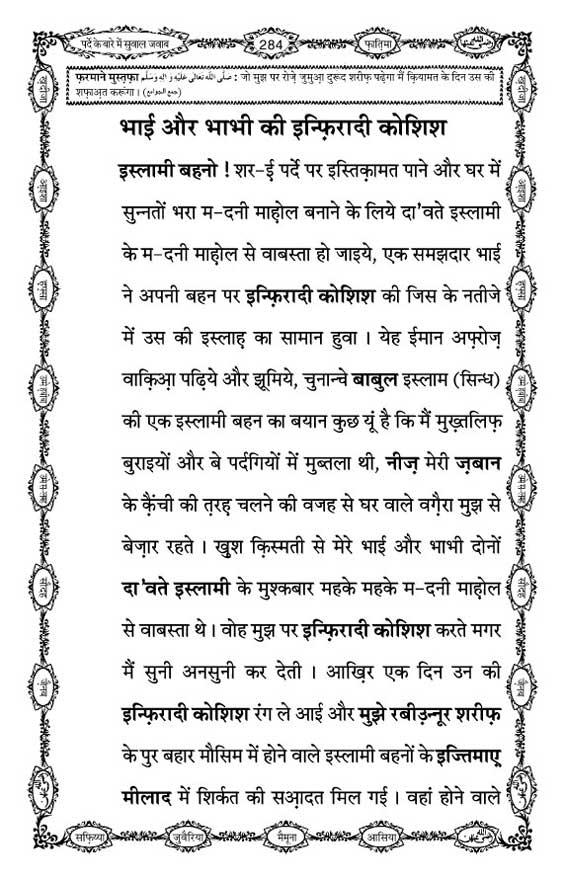 पर्दे के बारे में सुवाल जवाब
284
फ़ातिमा
फ़रमाने मुस्तफ़ा صَلَّى اللّٰهُ تَعَالٰى عَلَيْهِ وَاٰلِهٖ وَسَلَّم : जो मुझ पर रोज़े जुमुआ़ दुरूद शरीफ़ पढ़ेगा मैं क़ियामत के दिन उस की
शफ़ाअ़त करूंगा । (جمع الجوامع)
भाई और भाभी की इन्फ़िरादी कोशिश
इस्लामी बहनो ! शर-ई़ पर्दे पर इस्तिक़ामत पाने और घर में
सुन्नतों भरा म-दनी माह़ोल बनाने के लिये दा'वते इस्लामी
के म-दनी माह़ोल से वाबस्ता हो जाइये, एक समझदार भाई
ने अपनी बहन पर इन्फ़िरादी कोशिश की जिस के नतीजे
में उस की इस्लाह का सामान हुवा । येह ईमान अफ़्रोज़
वाक़िआ़ पढ़िये और झूमिये, चुनान्चे बाबुल इस्लाम (सिन्ध)
की एक इस्लामी बहन का बयान कुछ यूं है कि मैं मुख़्तलिफ़
बुराइयों और बे पर्दगियों में मुब्तला थी, नीज़ मेरी ज़बान
के कै़ंची की त़रह़ चलने की वजह से घर वाले वगै़रा मुझ से
बेज़ार रहते । खुश क़िस्मती से मेरे भाई और भाभी दोनों
दा'वते इस्लामी के मुश्कबार महके महके म-दनी माह़ोल
से वाबस्ता थे । वोह मुझ पर इन्फ़िरादी कोशिश करते मगर
मैं सुनी अनसुनी कर देती । आख़िर एक दिन उन की
इन्फ़िरादी कोशिश रंग ले आई और मुझे रबीउ़न्नूर शरीफ़
के पुर बहार मौसिम में होने वाले इस्लामी बहनों के इज्तिमाए़
मीलाद में शिर्कत की सआ़दत मिल गई । वहां होने वाले
सफ़िय्या
जुवैरिया
मैमूना
आसिया